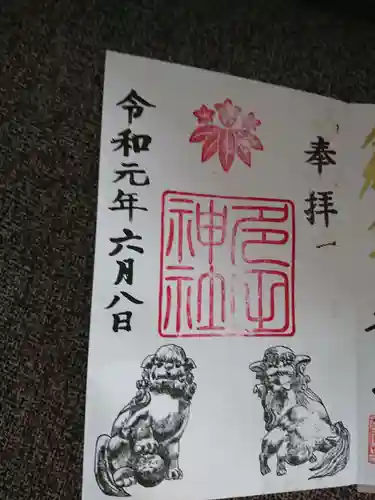 奉拝
多田神社
令和元年六月八日